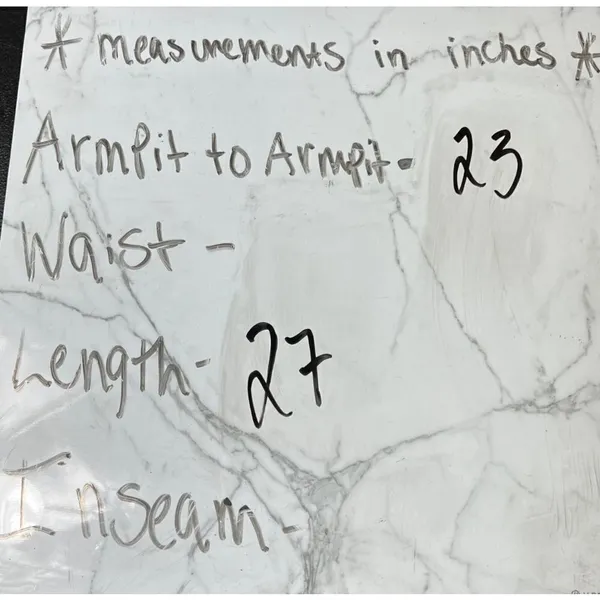 * measurements in inches *
Armpit to Armpit- 23
Waist -
Length- 27
Inseam-